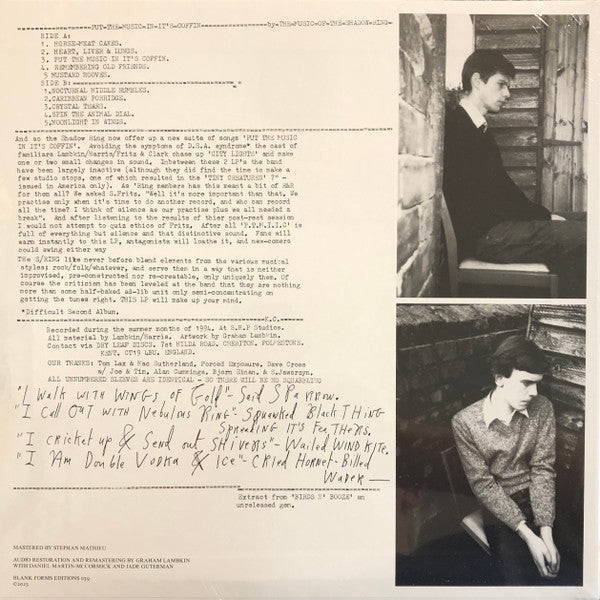 PUT-THE-MUSIC-IN-IT'S-COFFIN by-THE-MUSIC-OF-THE-SHADOW-RING-
SIDE A:
1. HORSE-MEAT CAKES.
2. HEART, LIVER & LUNGS.
3. PUT THE MUSIC IN IT'S COFFIN.
4. REMEMBERING OLD FRIENDS.
5 MUSTARD HOOVES.
SIDE B:
1.NOCTURNAL MIDDLE RUMBLES.
2.CARIBBEAN PORRIDGE.
3.CRYSTAL TEARS.
4.SPIN THE ANIMAL DIAL.
5.MOONLIGHT IN WINGS.
And so the Shadow Ring now offer up a new suite of songs 'PUT THE MUSIC
IN IT'S COFFIN'. Avoiding the symptoms of D.S.A. syndrome* the cast of
familiars Lambkin/Harris/Fritz & Clark chase up 'CITY LIGHTS' and make
one or two small changes in sound. Inbetween these 2 LP's the band
have been largely inactive (although they did find the time to make a
few studio stops, one of which resulted in the 'TINY CREATURES' 7" -
issued in America only). As 'Ring members has this meant a bit of R&R
for them all? We asked S.Fritz. "Well it's more important than that. We
practise only when it's time to do another record, and who can record
all the time? I think of silence as our practise plus we all needed a
break". And after listening to the results of thier post-rest session
I would not attempt to quiz ethics of Fritz. After all 'P.T.M.I.I.C' is
full of everything but silence and that distinctive sound. Fans will
warm instantly to this LP, antagonists will loathe it, and new-comers
could swing either way
THE S/RING like never before blend elements from the various musical
styles; rock/folk/whatever, and serve then in a way that is neither
improvised, pre-constructed nor re-creatable, only uniquely them. Of
course the criticism has been leveled at the band that they are nothing
more than some half-baked ad-lib unit only semi-concentrating on
getting the tunes right. THIS LP will make up your mind.
*Difficult Second Album.
K.C.
Recorded during the summer months of 1994. At S.R.P Studios.
All material by Lambkin/Harris. Artwork by Graham Lambkin.
Contact via DRY LEAF DISCS. 7st HILDA ROAD. CHERITON. FOLKESTONE.
KENT. CT19 LBU. ENGLAND.
OUR THANKS: Tom Lax & Mac Sutherland, Forced Exposure, Dave Cross
w/ Joe & Tin, Alan Cummings, Bjorn Einan, & S.Jaworzyn.
ALL UNNUMBERED SLEEVES ARE IDENTICAL - SO THERE WILL BE NO SQUABBLING
"I Walk WITH WINGS of Gold" - Said SPARROW.
"I Call OUT WITH Nebulous Ring" - Squawked Black THING
Spreading IT'S FEATHERS.
"I cricket up & Send out SHIVERS" - Wailed WIND KITE.
"I Am Double Vodka & Ice" - CRied HORNET-Billed
WadeR
Extract from 'BIRDS N' BOOZE' an
unreleased gem.
MASTERED BY STEPHAN MATHIEU
AUDIO RESTORATION AND REMASTERING BY GRAHAM LAMBKIN
WITH DANIEL MARTIN-MCCORMICK AND JADE GUTERMAN
BLANK FORMS EDITIONS 039
©2023